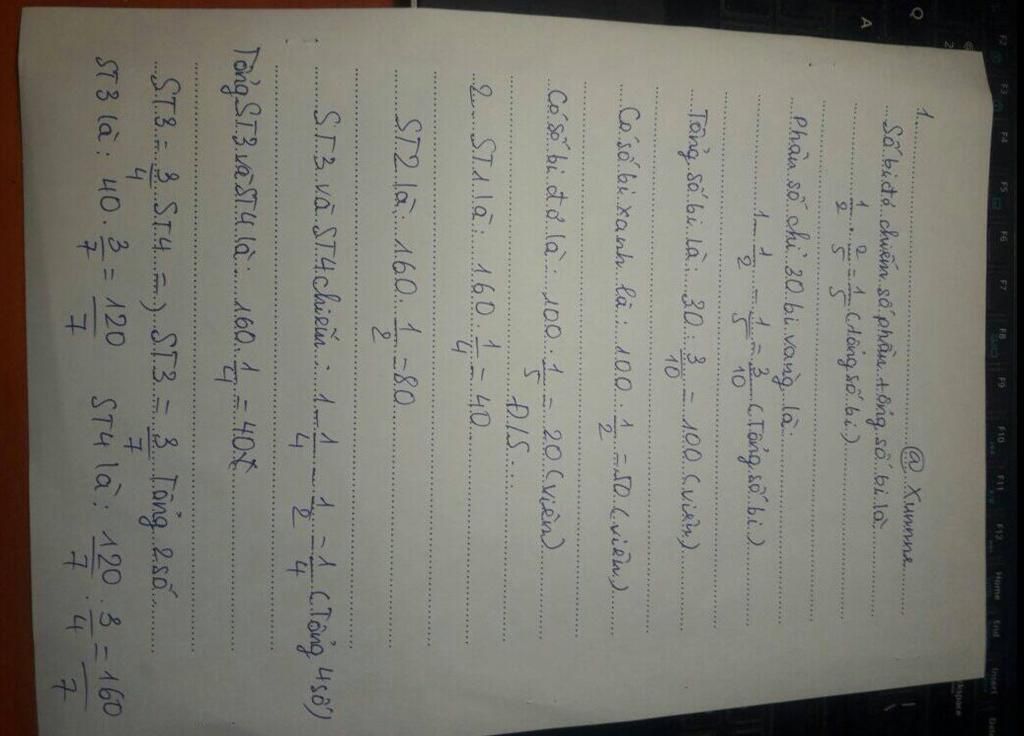 @ Xummne
1.
Số bi đỏ chiếm số phần tổng số bi là
1/2 . 2/5 = 1/5 (tổng số bi)
Phân số chỉ 30 bi vàng là:
1 - 1/2 - 1/5 = 3/10 (Tổng số bi)
Tổng số bi là: 30 : 3/10 = 100 (viên)
Có số bi xanh là: 100 . 1/2 = 50 (viên)
Có số bi đỏ là: 100 . 1/5 = 20 (viên)
Đ/S...
2. ST1 là: 160 . 1/4 = 40
ST2 là: 160 . 1/2 = 80
ST3 và ST4 chiếm: 1 - 1/4 - 1/2 = 1/4 (Tổng 4 số)
Tổng ST3 và ST4 là: 160 . 1/4 = 40
ST3 = 3/4 ST4 => ST3 = 3/7 Tổng 2 số
ST3 là: 40 . 3/7 = 120/7 ST4 là: 120/7 : 3/4 = 160/7
Q
A
2
F2
F3
F4
F5
F6
F7
F8
F9
F10
F11
F12
Home
End
Insert